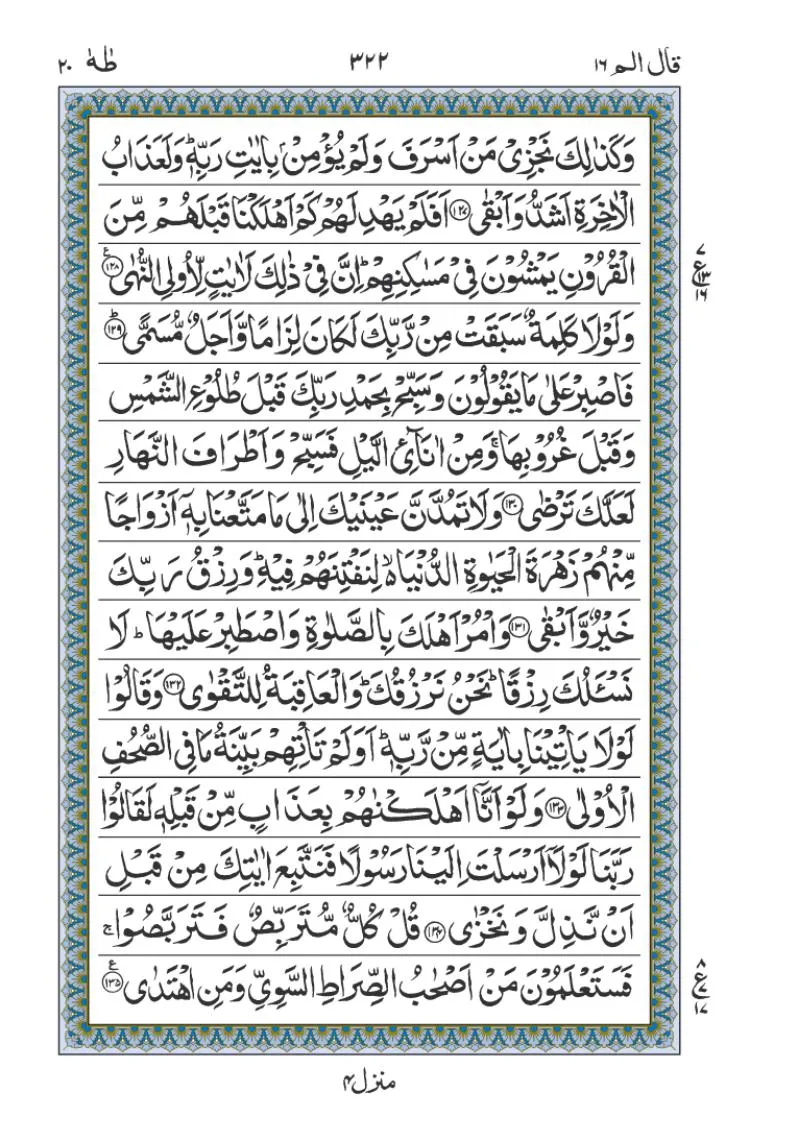 قال الم ١٦ ٣٢٢ طٰهٰ ٢٠
وَكَذٰلِكَ نَجْزِىْ مَنْ اَسْرَفَ وَلَمْ يُؤْمِنْۢ بِاٰيٰتِ رَبِّهٖ ؕ وَلَعَذَابُ
الْاٰخِرَةِ اَشَدُّ وَاَبْقٰى ﴿۱۲۷﴾ اَفَلَمْ يَهْدِ لَهُمْ كَمْ اَهْلَكْنَا قَبْلَهُمْ مِّنَ
الْقُرُوْنِ يَمْشُوْنَ فِىْ مَسٰكِنِهِمْ ؕ اِنَّ فِىْ ذٰلِكَ لَاٰيٰتٍ لِّاُولِى النُّهٰى ﴿۱۲۸﴾ ع
٧ ع ١٣ ١٦
وَلَوْلَا كَلِمَةٌ سَبَقَتْ مِنْ رَّبِّكَ لَكَانَ لِزَامًا وَّاَجَلٌ مُّسَمًّى ؕ ﴿۱۲۹﴾
فَاصْبِرْ عَلٰى مَا يَقُوْلُوْنَ وَسَبِّحْ بِحَمْدِ رَبِّكَ قَبْلَ طُلُوْعِ الشَّمْسِ
وَقَبْلَ غُرُوْبِهَا ۚ وَمِنْ اٰنَآئِ الَّيْلِ فَسَبِّحْ وَاَطْرَافَ النَّهَارِ
لَعَلَّكَ تَرْضٰى ﴿۱۳۰﴾ وَلَا تَمُدَّنَّ عَيْنَيْكَ اِلٰى مَا مَتَّعْنَا بِهٖۤ اَزْوَاجًا
مِّنْهُمْ زَهْرَةَ الْحَيٰوةِ الدُّنْيَا ۙ۬ لِنَفْتِنَهُمْ فِيْهِ ؕ وَرِزْقُ رَبِّكَ
خَيْرٌ وَّاَبْقٰى ﴿۱۳۱﴾ وَاْمُرْ اَهْلَكَ بِالصَّلٰوةِ وَاصْطَبِرْ عَلَيْهَا ؕ لَا
نَسْـَٔلُكَ رِزْقًا ؕ نَحْنُ نَرْزُقُكَ ؕ وَالْعَاقِبَةُ لِلتَّقْوٰى ﴿۱۳۲﴾ وَقَالُوْا
لَوْلَا يَاْتِيْنَا بِاٰيَةٍ مِّنْ رَّبِّهٖ ؕ اَوَلَمْ تَاْتِهِمْ بَيِّنَةُ مَا فِى الصُّحُفِ
الْاُوْلٰى ﴿۱۳۳﴾ وَلَوْ اَنَّاۤ اَهْلَكْنٰهُمْ بِعَذَابٍ مِّنْ قَبْلِهٖ لَقَالُوْا
رَبَّنَا لَوْلَاۤ اَرْسَلْتَ اِلَيْنَا رَسُوْلًا فَنَتَّبِعَ اٰيٰتِكَ مِنْ قَبْلِ
اَنْ نَّذِلَّ وَنَخْزٰى ﴿۱۳۴﴾ قُلْ كُلٌّ مُّتَرَبِّصٌ فَتَرَبَّصُوْا ۚ
فَسَتَعْلَمُوْنَ مَنْ اَصْحٰبُ الصِّرَاطِ السَّوِىِّ وَمَنِ اهْتَدٰى ﴿۱۳۵﴾ ع
٨ ع ٧ ١٧
منزل ۴